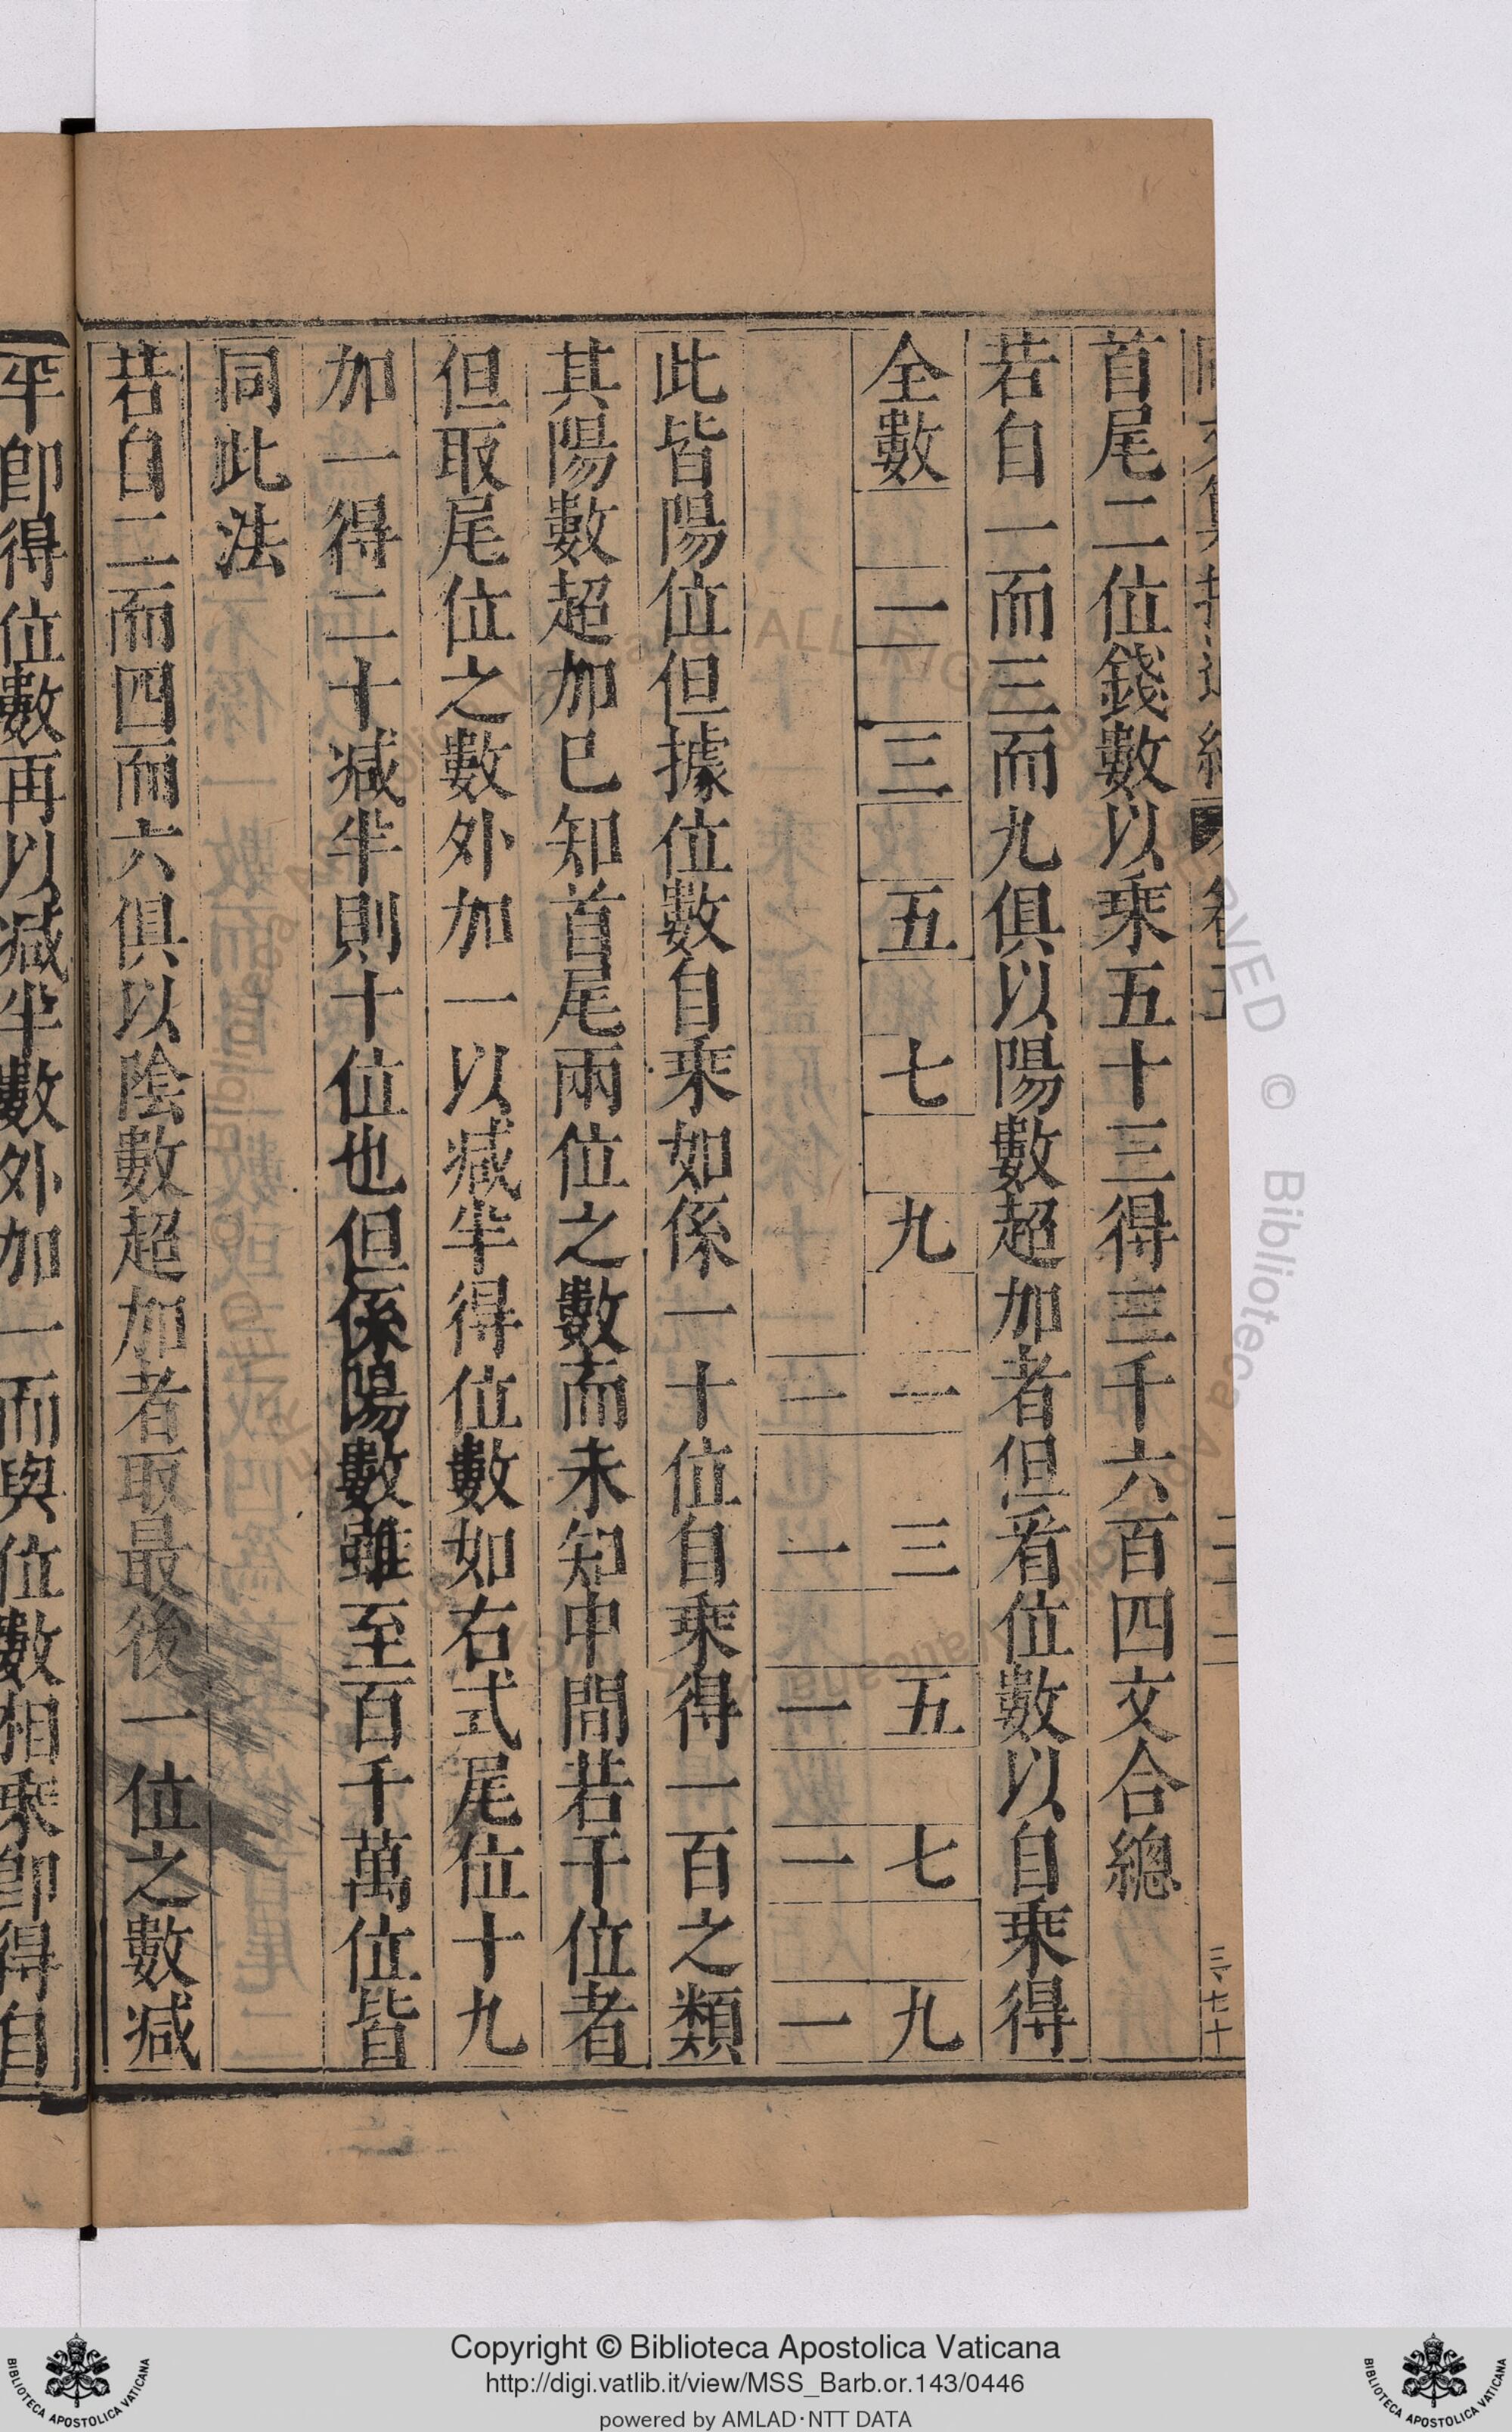 首尾二位錢數以乘五十三得三千六百四文合總
若自一而三而九俱以陽數超加者但看位數以自乘得
全數 一 三 五 七 九 一 三 五 七 九
一 一 一 一 一
此皆陽位但據位數自乘如係一十位自乘得一百之類
其陽數超加已知首尾兩位之數而未知中間若干位者
但取尾位之數外加一以減半得位數如右式尾位十九
加一得二十減半則十位也但係陽數雖至百千萬位皆
同此法
若自二而四而六俱以陰數超加者取最後一位之數減
半即得位數再以減半數外加一而與位數相乘即得自
Copyright © Biblioteca Apostolica Vaticana
http://digi.vatlib.it/view/MSS_Barb.or.143/0446
powered by AMLAD·NTT DATA
BIBLIOTECA APOSTOLICA VATICANA
BIBLIOTECA APOSTOLICA VATICANA